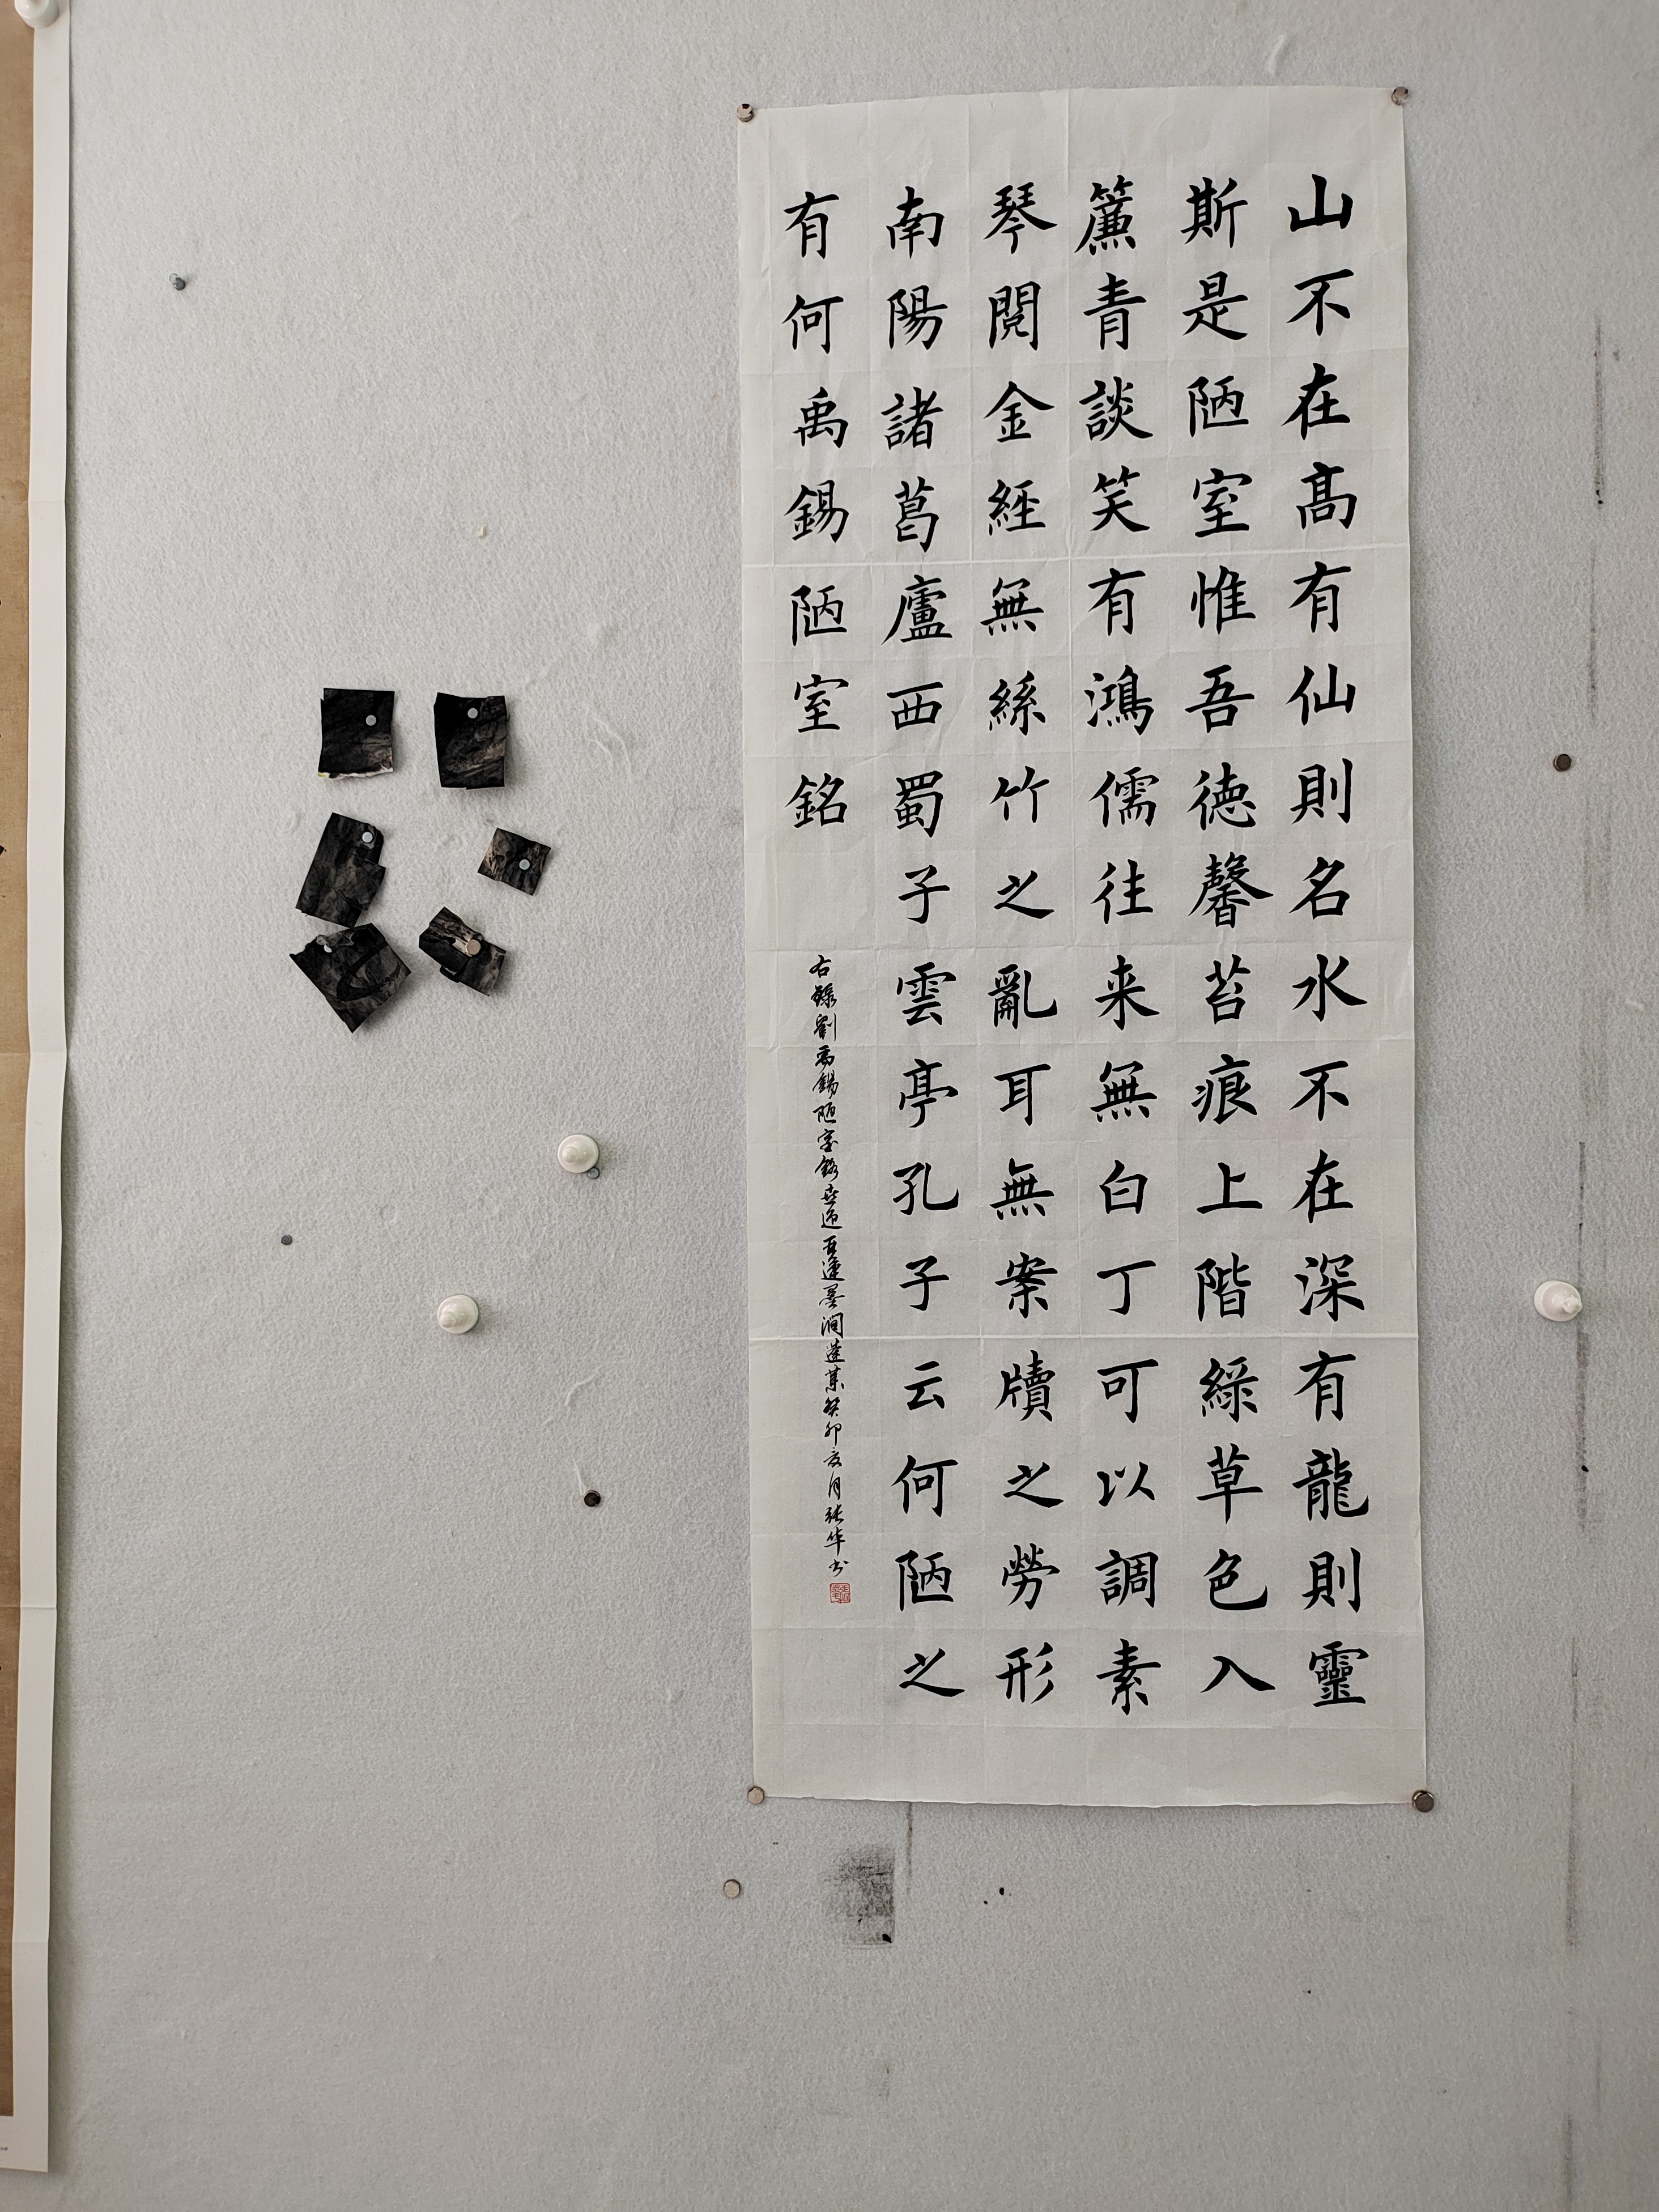 山不在高有仙則名水不在深有龍則靈
斯是陋室惟吾德馨苔痕上階綠草色入
簾青談笑有鴻儒往来無白丁可以調素
琴閱金經無絲竹之亂耳無案牘之勞形
南陽諸葛廬西蜀子雲亭孔子云何陋之
有何禹錫陋室銘
右錄劉禹錫陋室銘 墨潤 癸卯亥月張华书